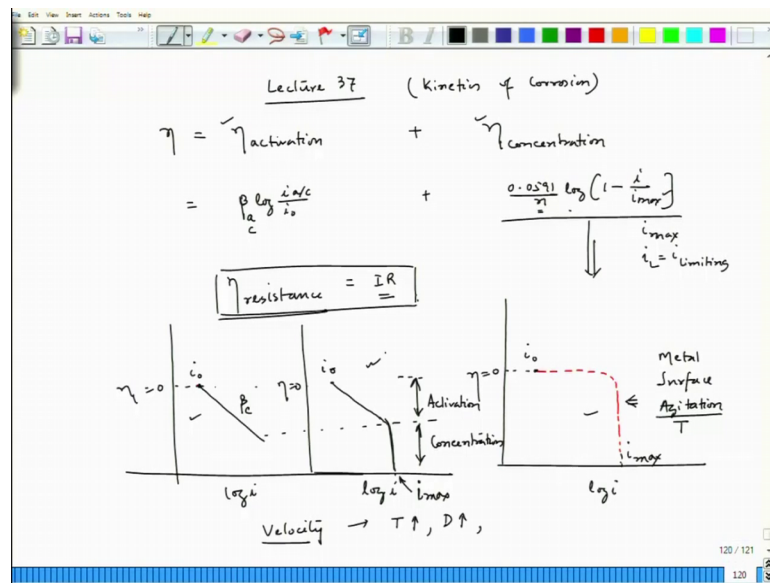 File Edit View Insert Actions Tools Help
B I
Lecture 37 (Kinetics of Corrosion)
η = η activation + η concentration
= β a c log i a/c / i₀ + 0.0591 / n log (1 - i / i max]
i max
i L = i Limiting
η resistance = IR
η = 0 i₀ β c
log i
η = 0 i₀
Activation
Concentration
log i i max
η = 0 i₀
i max
log i
Metal
Surface
Agitation
T
Velocity → T ↑, D ↑,
120 / 121
120